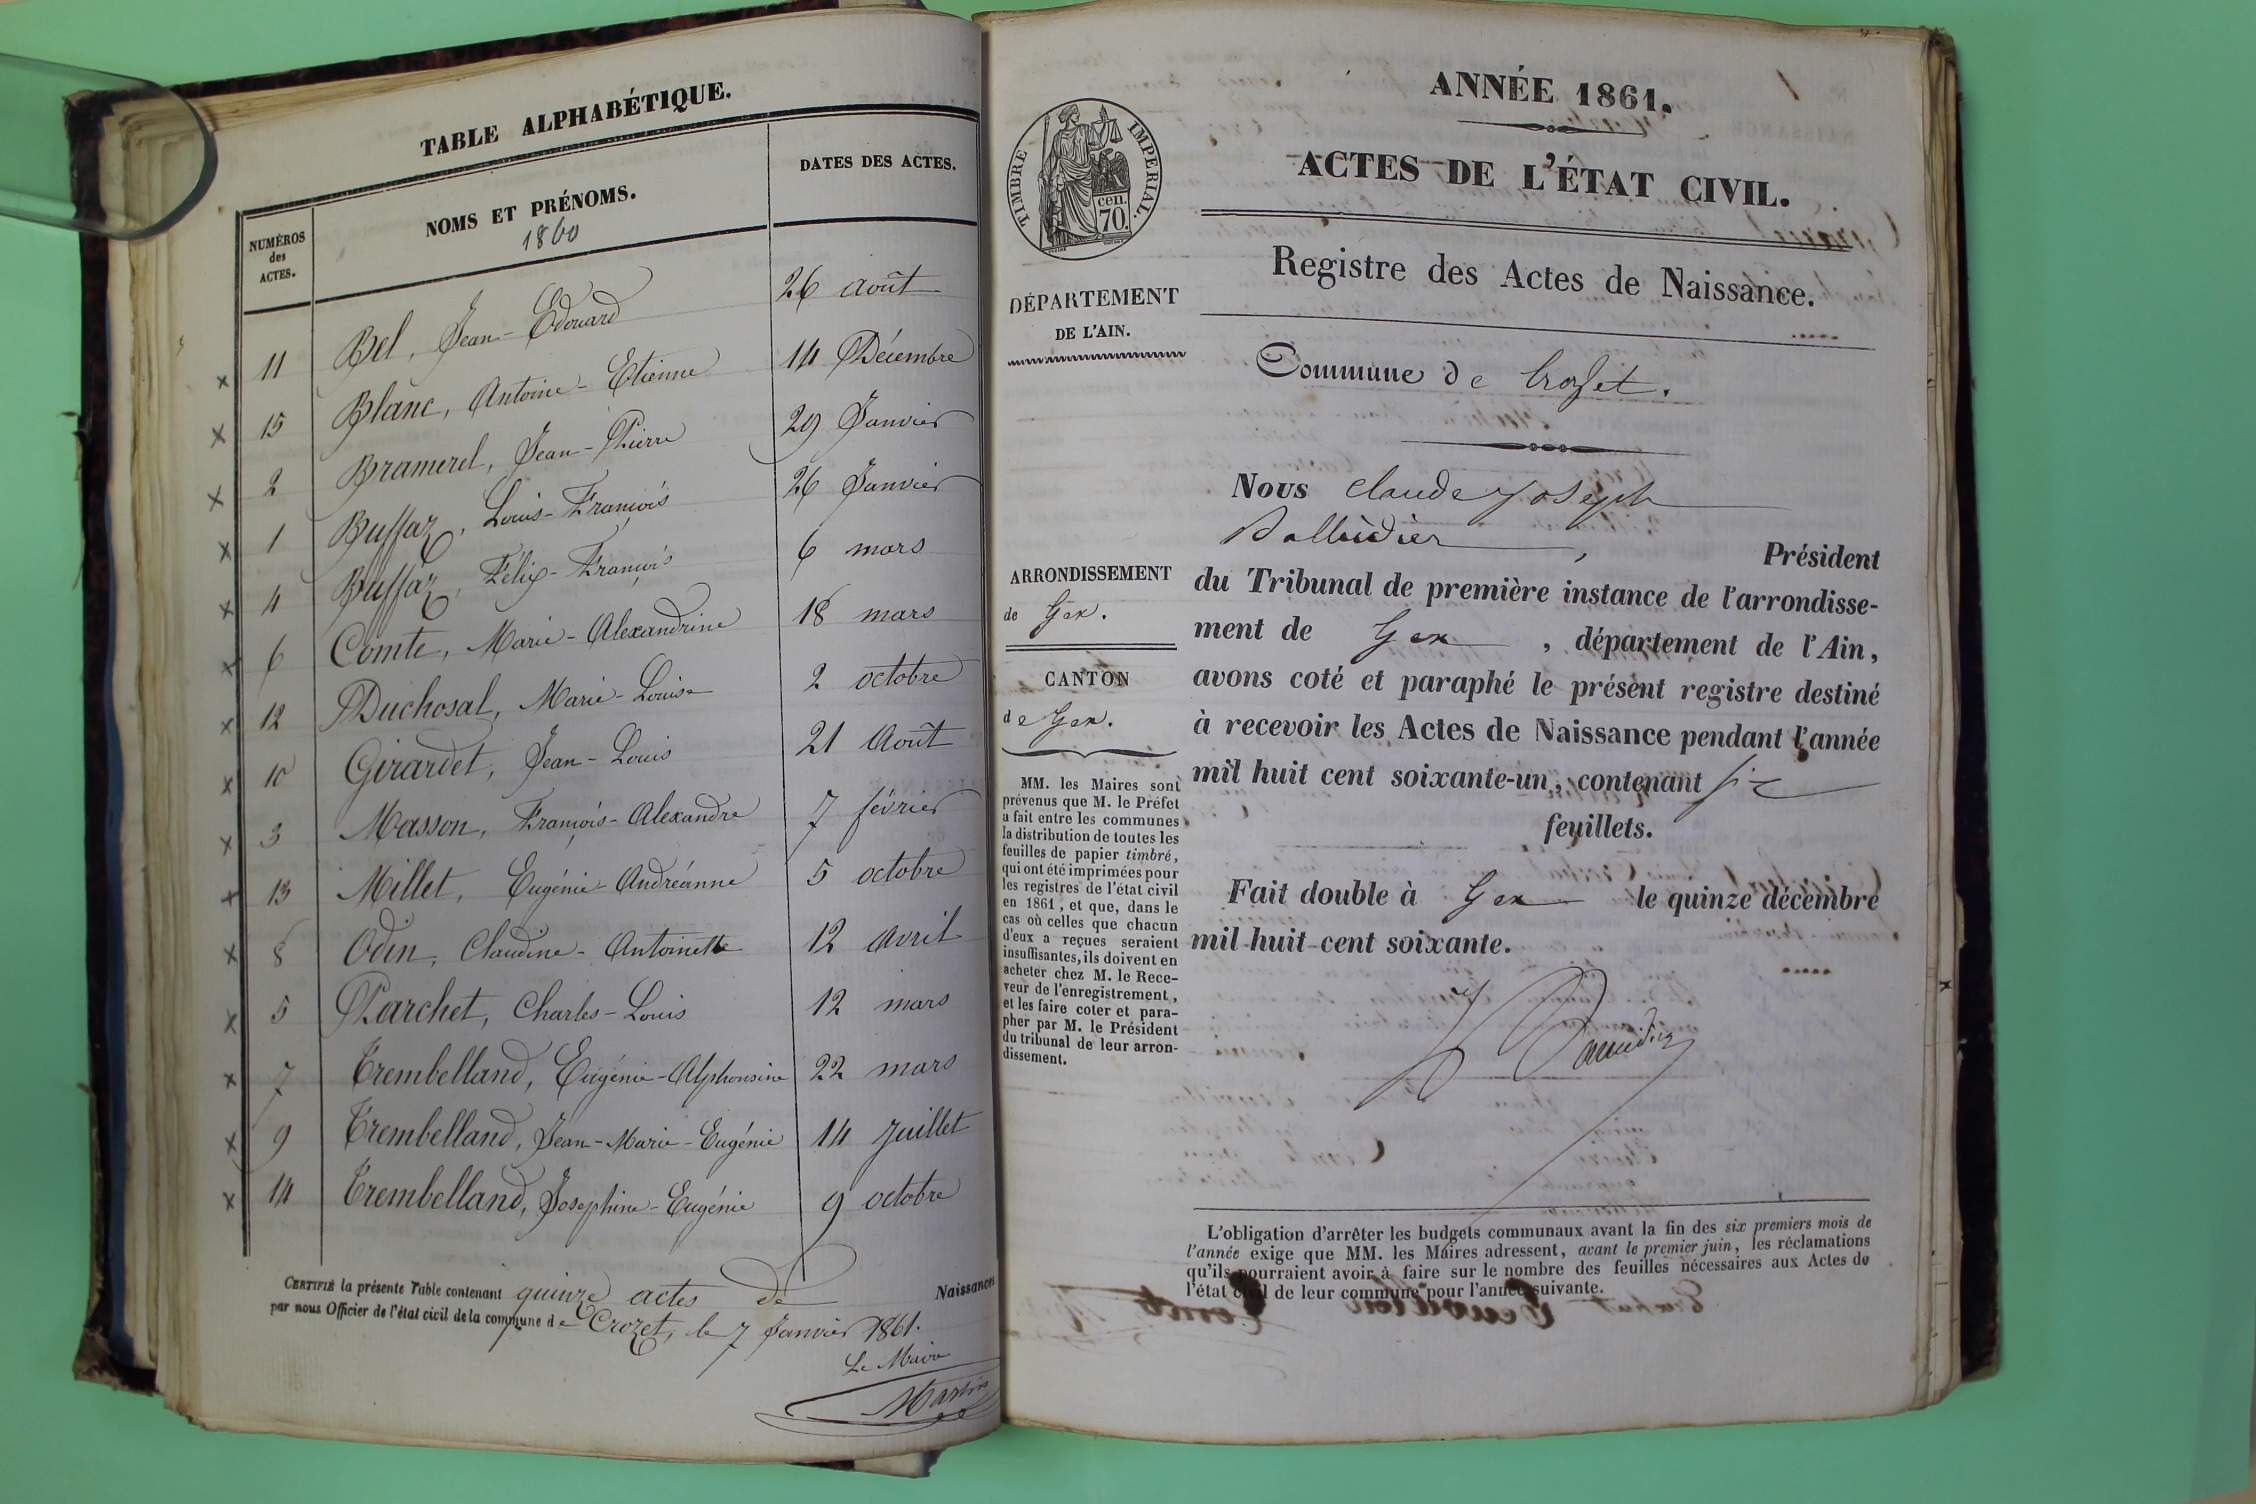 TABLE ALPHABÉTIQUE.
NUMÉROS des ACTES. NOMS ET PRÉNOMS. DATES DES ACTES.
1860
x 11 Bel, Jean-Edouard 26 août
x 15 Blanc, Antoine-Etienne 14 Décembre
x 2 Bramerel, Jean-Pierre 29 Janvier
x 1 Buffaz, Louis-François 26 Janvier
x 4 Buffaz, Félix-François 6 mars
x 6 Comte, Marie-Alexandrine 18 mars
x 12 Duchosal, Marie-Louise 2 octobre
x 10 Girardet, Jean-Louis 21 Août
x 3 Masson, François-Alexandre 7 février
x 13 Millet, Eugénie-Andréanne 5 octobre
x 8 Odin, Claudine-Antoinette 12 avril
x 5 Parchet, Charles-Louis 12 mars
x 7 Trembelland, Eugénie-Alphonsine 22 mars
x 9 Trembelland, Jean-Marie-Eugénie 14 Juillet
x 14 Trembelland, Josephine-Eugénie 9 octobre
CERTIFIÉ la présente Table contenant quinze actes de Naissances
par nous Officier de l'état civil de la commune de Crozet, le 7 Janvier 1861.
Le Maire
Martin
ANNÉE 1861.
TIMBRE IMPERIAL.
cen.
70.
ACTES DE L'ÉTAT CIVIL.
Registre des Actes de Naissance.
DÉPARTEMENT
DE L'AIN.
Commune de Crozet.
ARRONDISSEMENT
de Gex.
CANTON
de Gex.
MM. les Maires sont
prévenus que M. le Préfet
a fait entre les communes
la distribution de toutes les
feuilles de papier timbré,
qui ont été imprimées pour
les registres de l'état civil
en 1861, et que, dans le
cas où celles que chacun
d'eux a reçues seraient
insuffisantes, ils doivent en
acheter chez M. le Rece-
veur de l'enregistrement,
et les faire coter et para-
pher par M. le Président
du tribunal de leur arron-
dissement.
Nous Claude Joseph
, Président
du Tribunal de première instance de l'arrondisse-
ment de Gex, département de l'Ain,
avons coté et paraphé le présent registre destiné
à recevoir les Actes de Naissance pendant l'année
mil huit cent soixante-un, contenant six
feuillets.
Fait double à Gex le quinze décembre
mil huit cent soixante.
L'obligation d'arrêter les budgets communaux avant la fin des six premiers mois de
l'année exige que MM. les Maires adressent, avant le premier juin, les réclamations
qu'ils pourraient avoir à faire sur le nombre des feuilles nécessaires aux Actes de
l'état civil de leur commune pour l'année suivante.